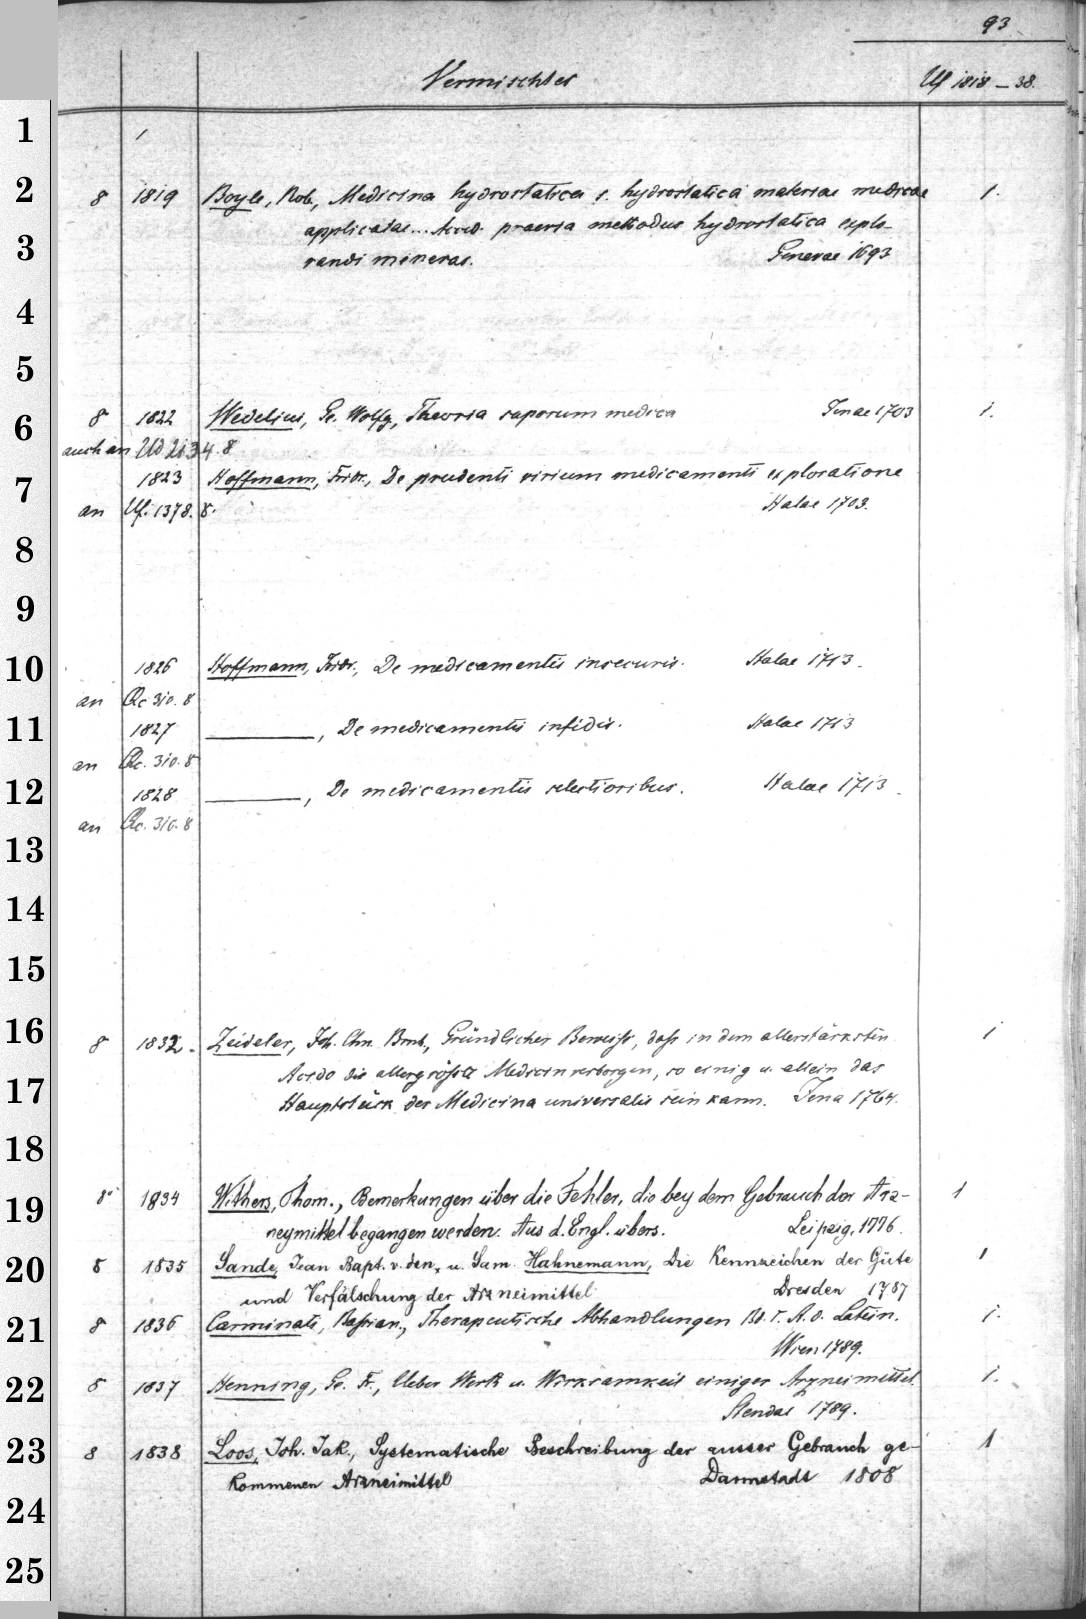 93
Vermischtes
Uf 1818 – 38.
1
2 8 1819 Boyle, Rob., Medicina hydrostatica s. hydrostatica materiae medicae 1.
applicatae... Acced. praevia methodus hydrostatica explo-
3 randi mineras. Genevae 1693
4
5
6 8 1822 Wedelius, Ge. Wolfg., Theoria saporum medica Jenae 1703 1.
auch an Ud 234.8
7 1823 Hoffmann, Fridr., De prudenti virium medicamenti exploratione
an Uf. 1378. 8. Halae 1703.
8
9
10 1826 Hoffmann, Fridr., De medicamentis insecuris. Halae 1713.
an Qc 310. 8
11 1827 ———, De medicamentis infidis. Halae 1713
an Qc. 310. 8
12 1828 ———, De medicamentis selectioribus. Halae 1713.
an Qc. 310. 8
13
14
15
16 8 1832. Zeideler, Joh. Chn. Bernh., Gründlicher Beweiss, dass in dem allerstärksten 1
Acido die allergrösste Medicin verborgen, so einig u. allein das
17 Hauptstück der Medicina universalis sein kann. Jena 1764.
18
19 8° 1834 Withers, Thom., Bemerkungen über die Fehler, die bey dem Gebrauch der Arz- 1
neymittel begangen werden. Aus d. Engl. übers. Leipzig, 1776.
20 8 1835 Sande, Jean Bapt. v. den, u. Sam. Hahnemann, Die Kennzeichen der Güte 1
und Verfälschung der Arzneimittel Dresden 1787
21 8 1836 Carminati, Bassian., Therapeutische Abhandlungen Bd. I. A. d. Latein. 1.
Wien 1789.
22 8 1837 Henning, Ge. Fr., Ueber Werk u. Wirksamkeit einiger Arzneimittel. 1.
Stendal 1789.
23 8 1838 Loos, Joh. Jak., Systematische Beschreibung der ausser Gebrauch ge- 1
kommenen Arzneimittel Darmstadt 1808
24
25